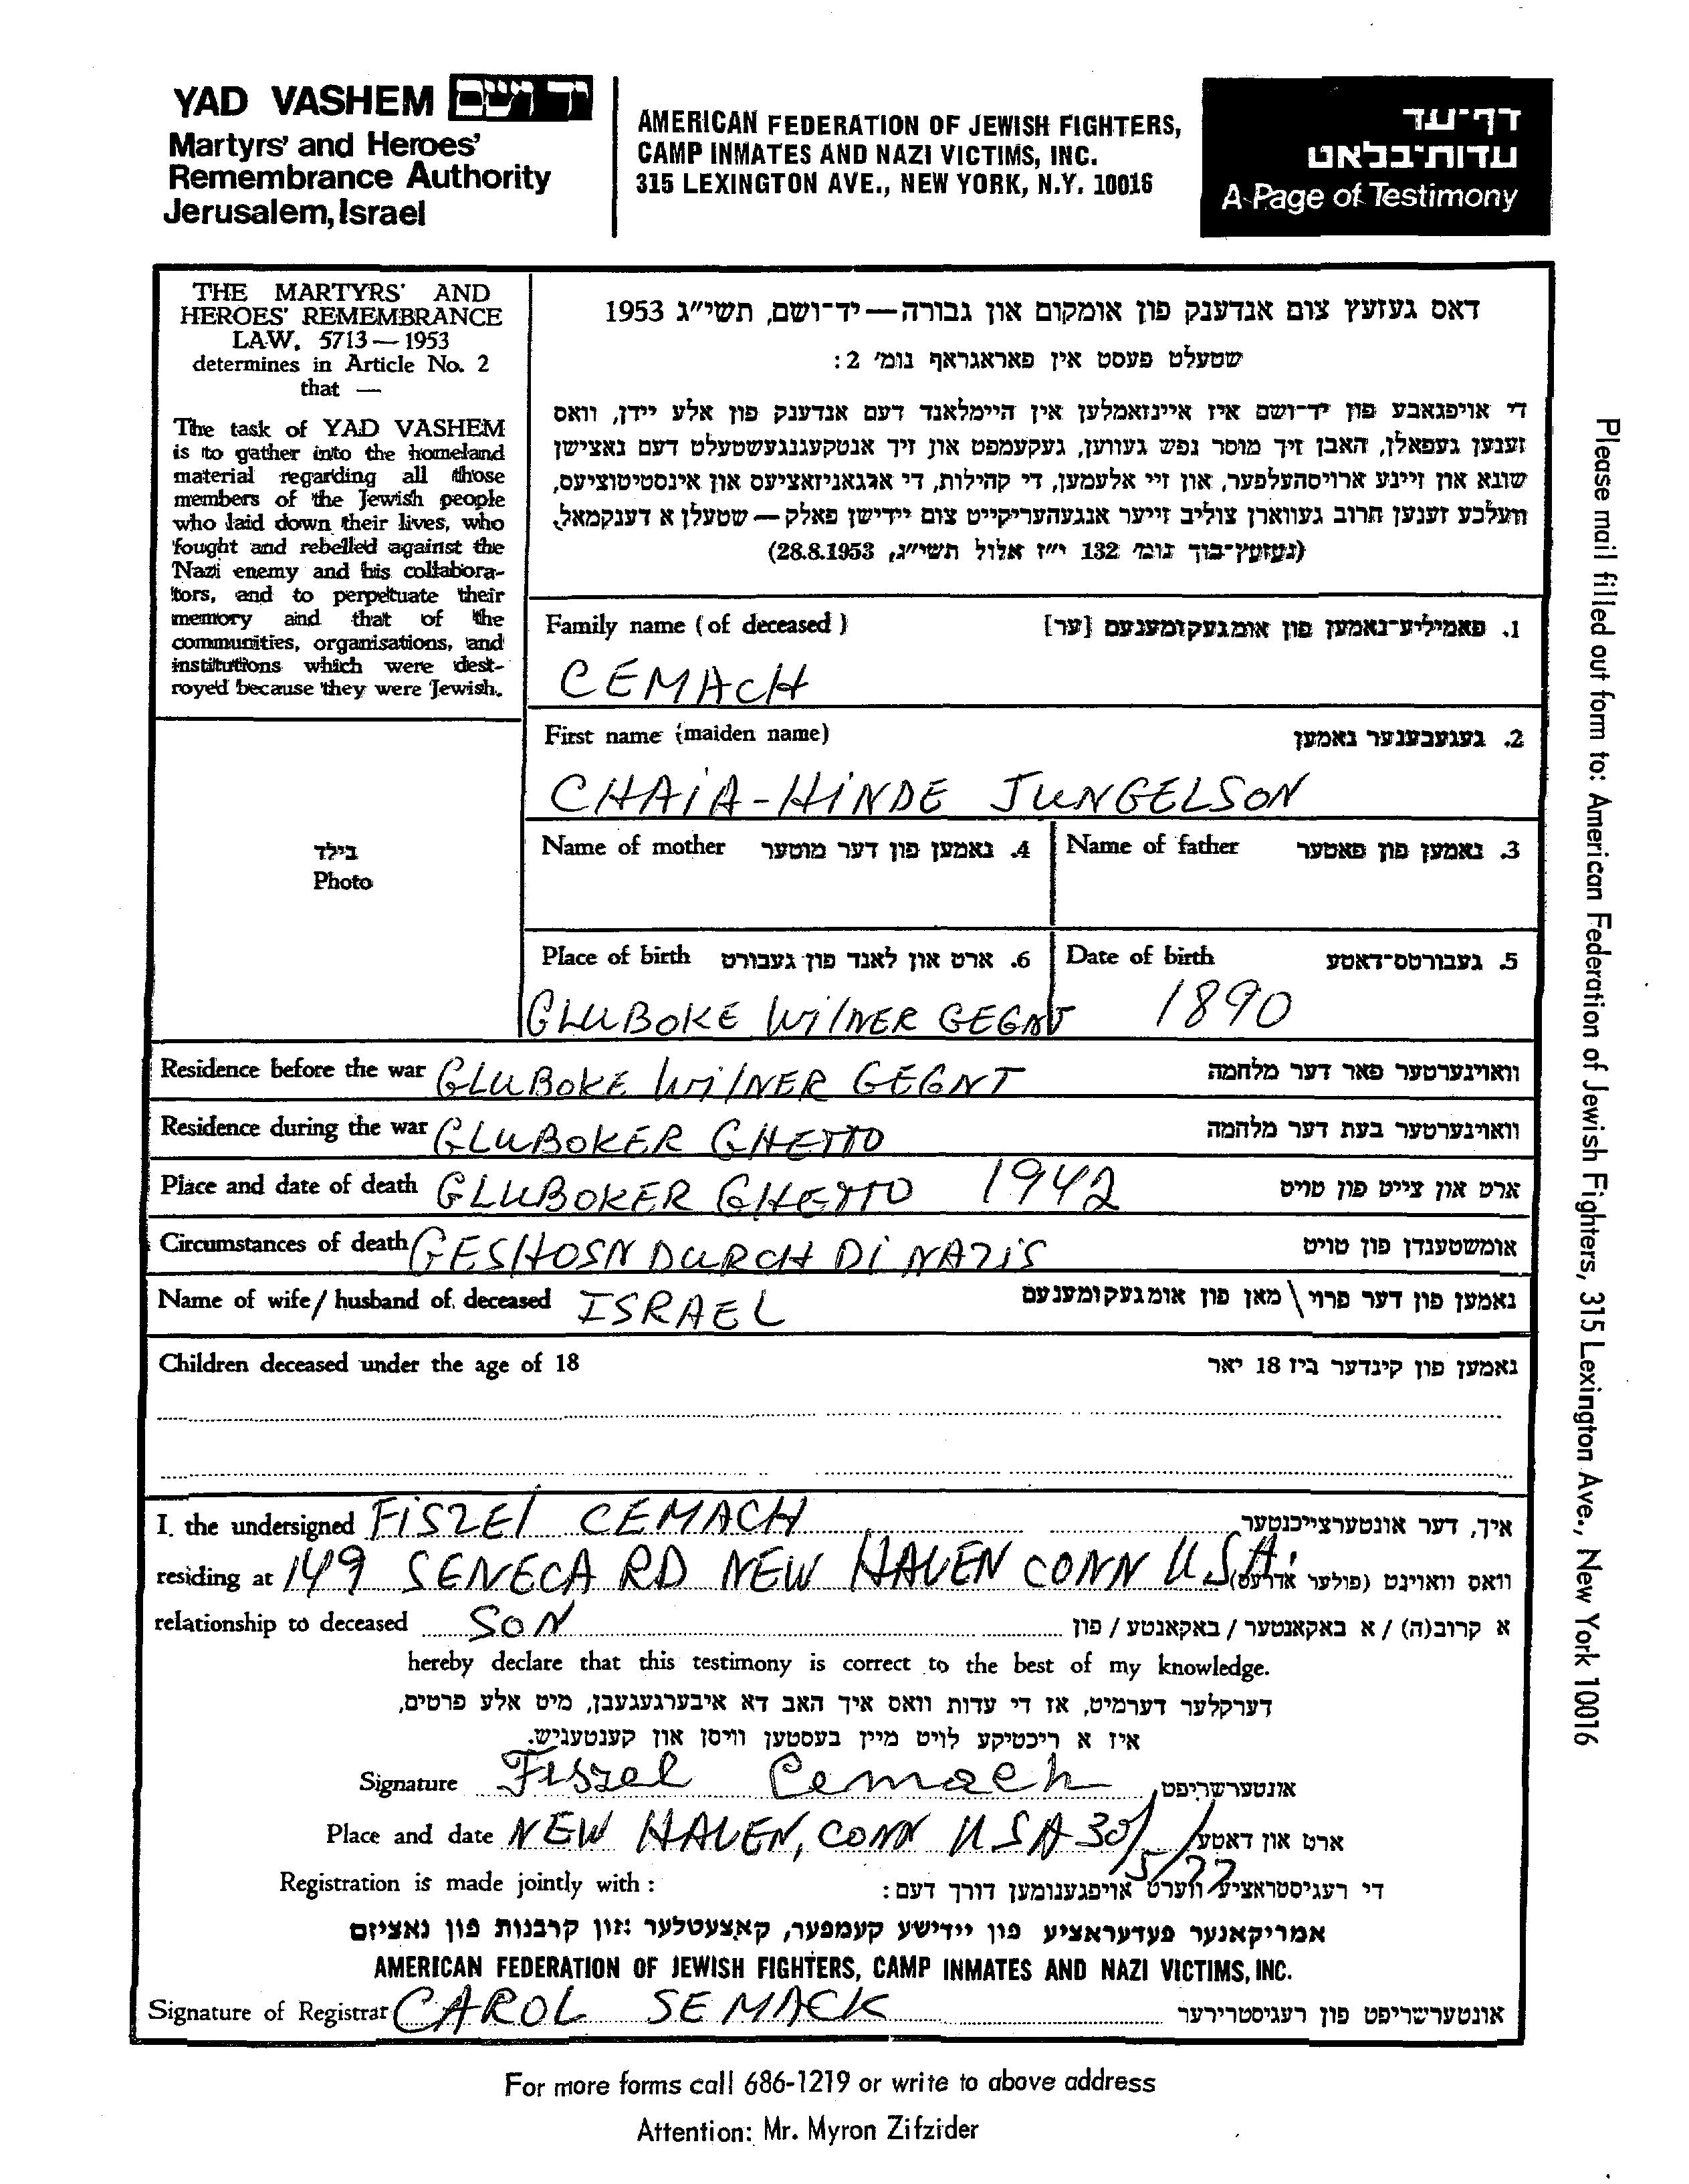 YAD VASHEM יד ושם
Martyrs' and Heroes'
Remembrance Authority
Jerusalem, Israel
AMERICAN FEDERATION OF JEWISH FIGHTERS,
CAMP INMATES AND NAZI VICTIMS, INC.
315 LEXINGTON AVE., NEW YORK, N.Y. 10016
דף־עד
עדות־בלאט
A Page of Testimony
THE MARTYRS' AND
HEROES' REMEMBRANCE
LAW, 5713—1953
determines in Article No. 2
that —
The task of YAD VASHEM
is to gather into the homeland
material regarding all those
members of the Jewish people
who laid down their lives, who
fought and rebelled against the
Nazi enemy and his collabora-
tors, and to perpetuate their
memory and that of the
communities, organisations, and
institutions which were dest-
royed because they were Jewish.
דאס געזעץ צום אנדענק פון אומקום און גבורה—יד־ושם, תשי״ג 1953
שטעלט פעסט אין פאראגראף נומ׳ 2:
די אויפגאבע פון יד־ושם איז איינזאמלען אין היימלאנד דעם אנדענק פון אלע יידן, וואס
זענען געפאלן, האבן זיך מוסר נפש געווען, געקעמפט און זיך אנטקעגנגעשטעלט דעם נאצישן
שונא און זיינע ארויסהעלפער, און זיי אלעמען, די קהילות, די ארגאניזאציעס און אינסטיטוציעס,
וועלכע זענען חרוב געווארן צוליב זייער אנגעהעריקייט צום יידישן פאלק — שטעלן א דענקמאל.
(געזעץ־בוך נומ׳ 132 י״ז אלול תשי״ג, 28.8.1953)
Family name (of deceased) 1. פאמיליע־נאמען פון אומגעקומענעם [ער]
CEMACH
First name (maiden name) 2. געגעבענער נאמען
CHAIA-HINDE JUNGELSON
בילד
Photo
Name of mother 4. נאמען פון דער מוטער
Name of father 3. נאמען פון פאטער
Place of birth 6. ארט און לאנד פון געבורט
GLUBOKE WILNER GEGNT
Date of birth 5. געבורטס־דאטע
1890
Residence before the war GLUBOKE WILNER GEGNT וואוינערטער פאר דער מלחמה
Residence during the war GLUBOKER GHETTO וואוינערטער בעת דער מלחמה
Place and date of death GLUBOKER GHETTO 1942 ארט און צייט פון טויט
Circumstances of death GESHOSN DURCH DI NAZIS אומשטענדן פון טויט
Name of wife / husband of deceased ISRAEL נאמען פון דער פרוי \ מאן פון אומגעקומענעם
Children deceased under the age of 18 נאמען פון קינדער ביז 18 יאר
I, the undersigned FISZEL CEMACH איך, דער אונטערצייכנטער
residing at 149 SENECA RD NEW HAVEN CONN USA. וואס וואוינט (פולער אדרעס)
relationship to deceased SON א קרוב(ה) / א באקאנטער / באקאנטע / פון
hereby declare that this testimony is correct to the best of my knowledge.
דערקלער דערמיט, אז די עדות וואס איך האב דא איבערגעגעבן, מיט אלע פרטים,
איז א ריכטיקע לויט מיין בעסטען וויסן און קענטעניש.
Signature Fiszel Cemach אונטערשריפט
Place and date NEW HAVEN, CONN USA 30/5/77 ארט און דאטע
Registration is made jointly with : די רעגיסטראציע ווערט אויפגענומען דורך דעם:
אמריקאנער פעדעראציע פון יידישע קעמפער, קאצעטלער און קרבנות פון נאציזם
AMERICAN FEDERATION OF JEWISH FIGHTERS, CAMP INMATES AND NAZI VICTIMS, INC.
Signature of Registrar CAROL SEMACK אונטערשריפט פון רעגיסטרירער
For more forms call 686-1219 or write to above address
Attention: Mr. Myron Zifzider
Please mail filled out form to: American Federation of Jewish Fighters, 315 Lexington Ave., New York 10016